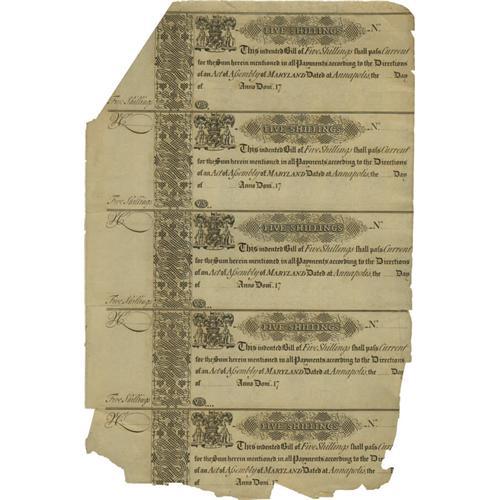 FIVE SHILLINGS Nº
This indented Bill of Five Shillings shall pass Current
for the Sum herein mentioned in all Payments according to the Directions
of an Act of Assembly of MARYLAND Dated at Annapolis, the Day
of Anno Dom. 17
Five Shillings VS
Nº FIVE SHILLINGS Nº
This indented Bill of Five Shillings shall pass Current
for the Sum herein mentioned in all Payments according to the Directions
of an Act of Assembly of MARYLAND Dated at Annapolis, the Day
of Anno Dom. 17
Five Shillings VS
Nº FIVE SHILLINGS Nº
This indented Bill of Five Shillings shall pass Current
for the Sum herein mentioned in all Payments according to the Directions
of an Act of Assembly of MARYLAND Dated at Annapolis, the Day
of Anno Dom. 17
Five Shillings VS
Nº FIVE SHILLINGS Nº
This indented Bill of Five Shillings shall pass Current
for the Sum herein mentioned in all Payments according to the Directions
of an Act of Assembly of MARYLAND Dated at Annapolis, the Day
of Anno Dom. 17
Five Shillings VS
Nº FIVE SHILLINGS
This indented Bill of Five Shillings shall pass Cur
for the Sum herein mentioned in all Payments according to the Direct
of an Act of Assembly of MARYLAND Dated at Annapolis, the
of Anno Dom. 17